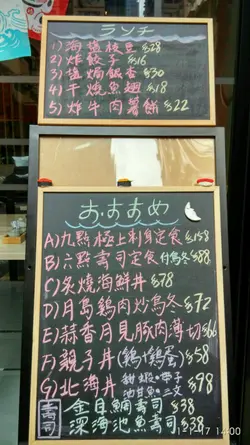 ランチ
1) 海塩枝豆 $28
2) 炸餃子 $16
3) 塩焗銀杏 $30
4) 干燒魚翅 $18
5) 炸牛肉薯餅 $22
おすすめ
A) 九點極上刺身定食 $158
B) 六點壽司定食 付烏冬 $88
C) 炙燒海鮮丼 $78
D) 月島鷄肉炒烏冬 $72
E) 蒜香月見豚肉薄切 $66
F) 親子丼 (鷄+鷄蛋) $58
G) 北海丼 甜蝦+帶子 $98
壽司 金目鯛壽司 $38
深海池魚壽司 $38